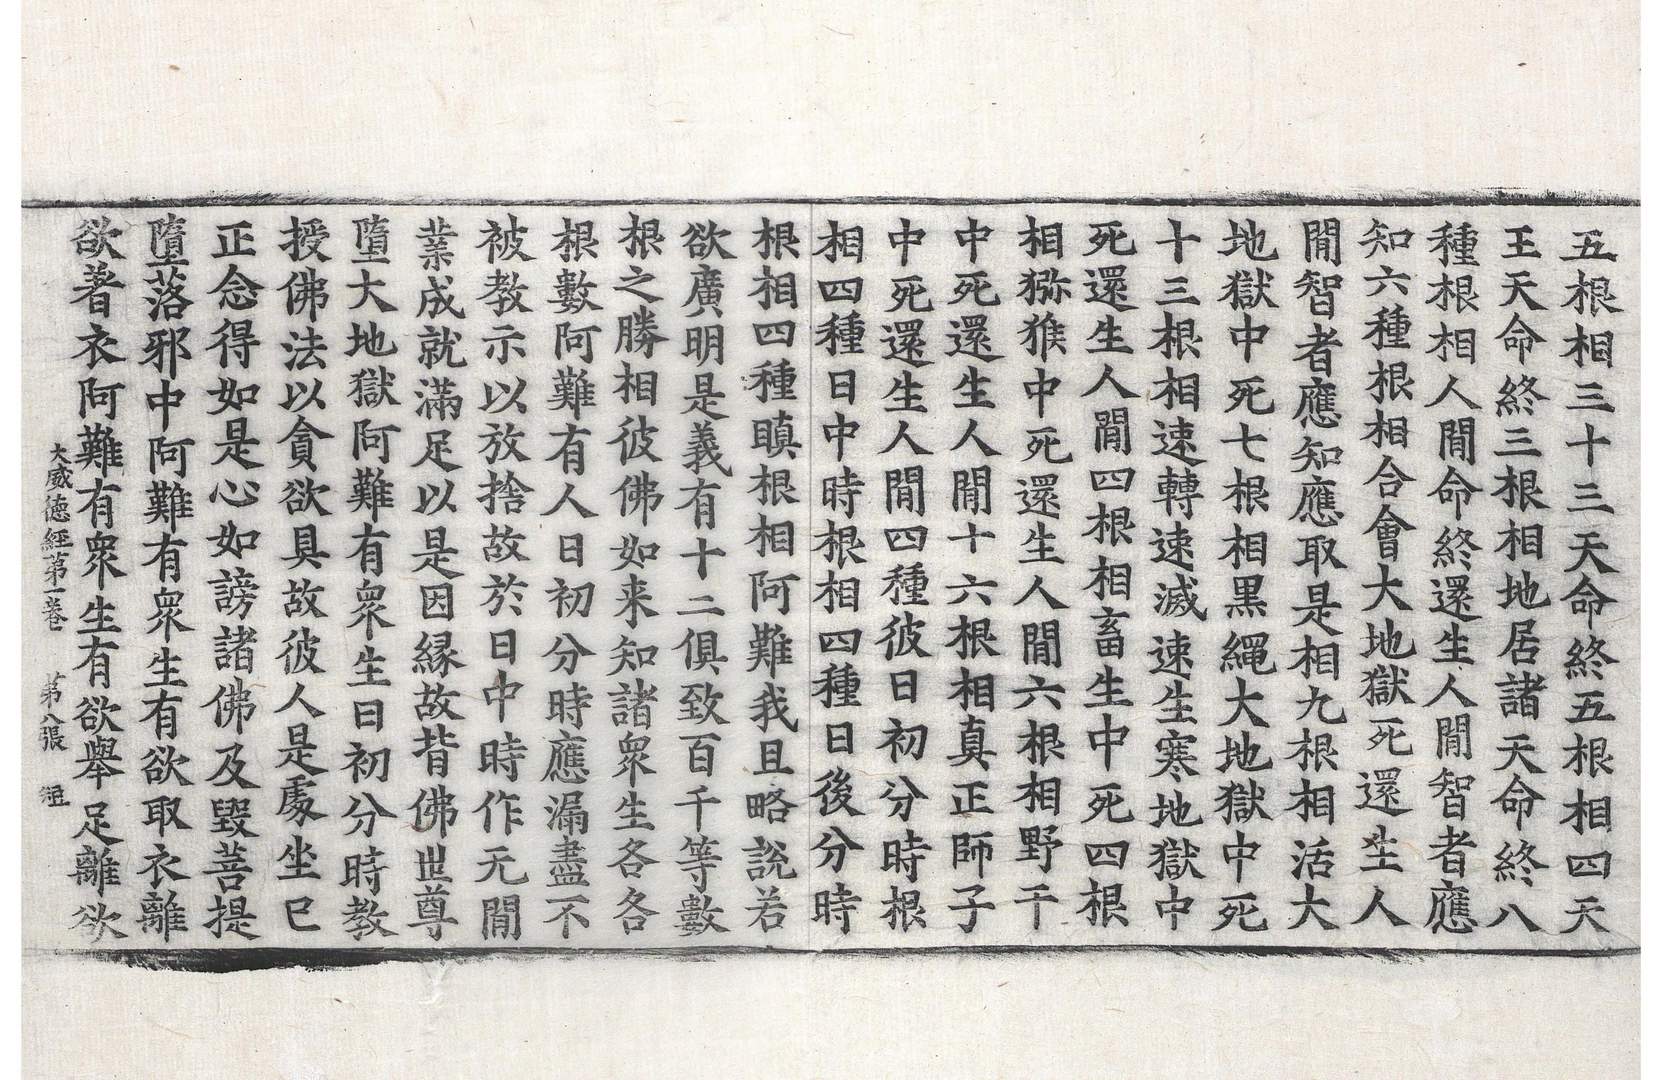 五根相三十三天命終五根相四天
王天命終三根相地居諸天命終八
種根相人閒命終還生人閒智者應
知六種根相合會大地獄死還生人
閒智者應知應取是相九根相活大
地獄中死七根相黒繩大地獄中死
十三根相速轉速滅速生寒地獄中
死還生人閒四根相畜生中死四根
相猕猴中死還生人閒六根相野干
中死還生人閒十六根相真正師子
中死還生人閒四種彼日初分時根
相四種日中時根相四種日後分時
根相四種瞋根相阿難我且略說若
欲廣明是義有十二俱致百千等數
根之勝相彼佛如来知諸衆生各各
根數阿難有人日初分時應漏盡不
被教示以放捨故於日中時作无閒
業成就滿足以是因縁故背佛世尊
墮大地獄阿難有衆生日初分時教
授佛法以貪欲具故彼人是處坐已
正念得如是心如謗諸佛及毀菩提
墮落邪中阿難有衆生有欲取衣離
欲著衣阿難有衆生有欲舉足離欲
大威徳經第一卷 第八張